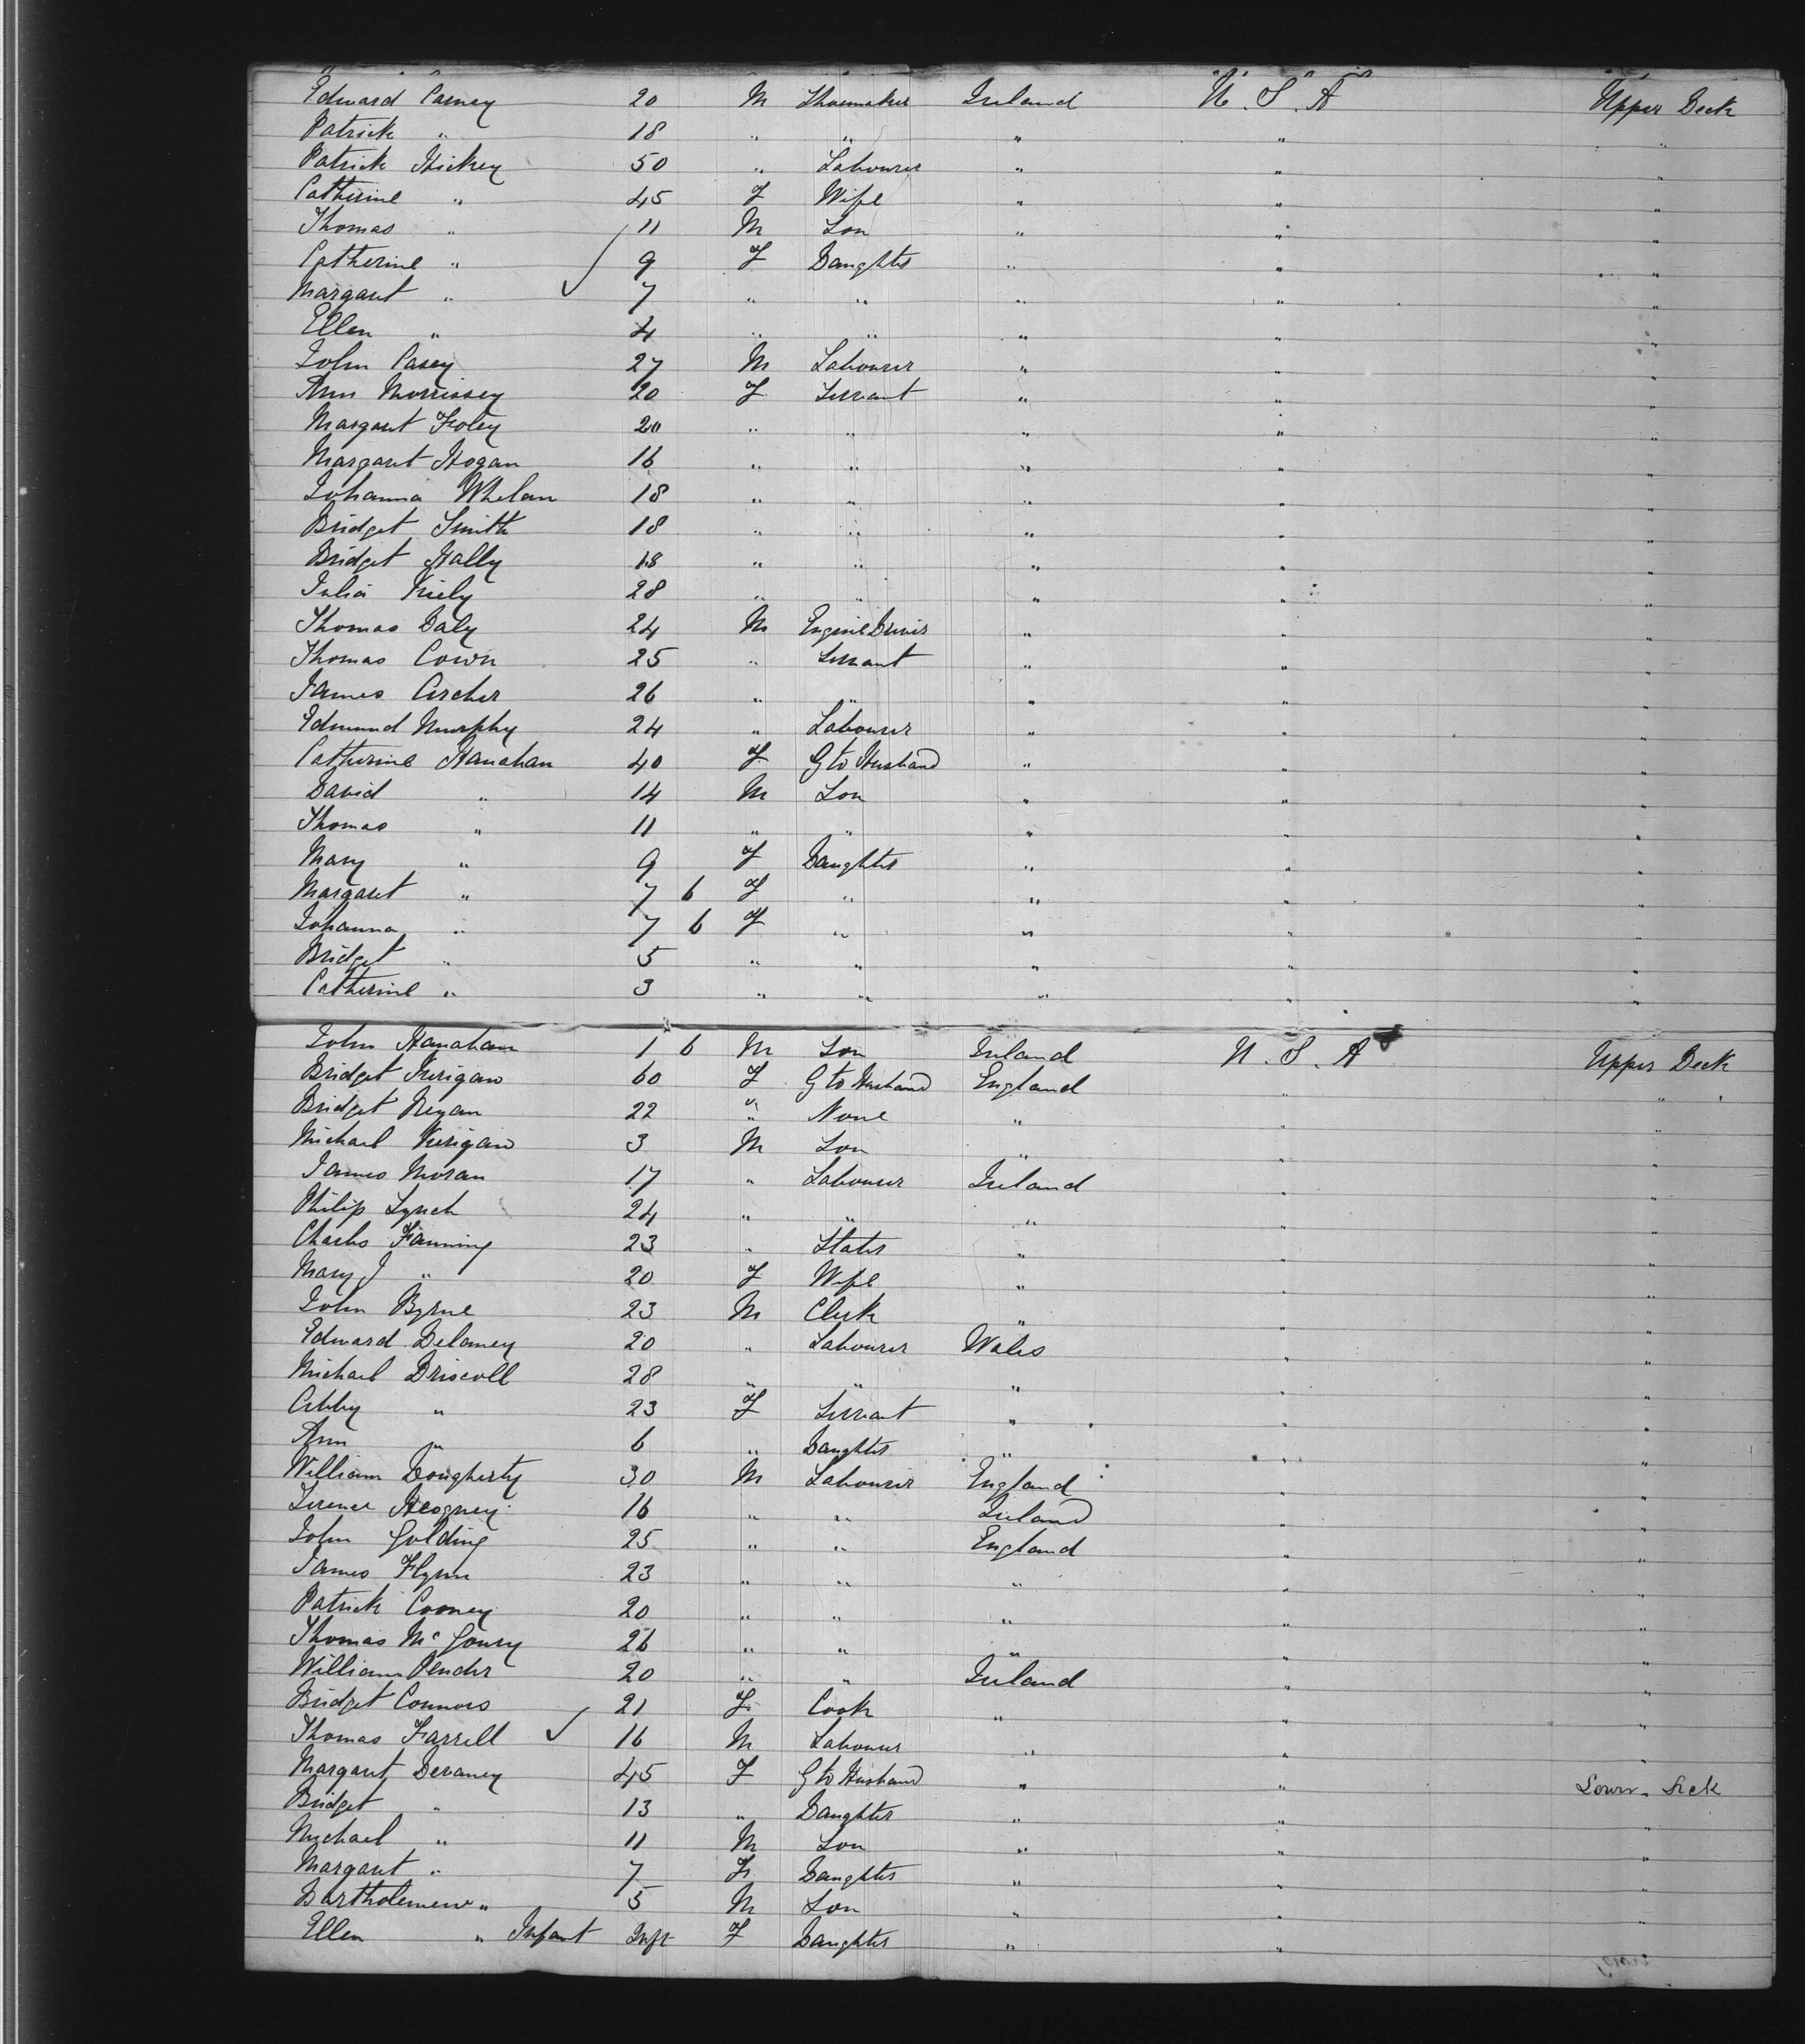 Edward Carney 20 M Shoemaker Ireland U. S. A Upper Deck
Patrick " 18 " " " " "
Patrick Hickey 50 " Labourer " " "
Catherine " 45 F Wife " " "
Thomas " 11 M Son " " "
Catherine " 9 F Daughter " " "
Margaret " 7 " " " " "
Ellen " 4 " " " " "
John Casey 27 M Labourer " " "
Ann Morrissey 20 F Servant " " "
Margaret Foley 20 " " " " "
Margaret Hogan 16 " " " " "
Johanna Whelan 18 " " " " "
Bridget Smith 18 " " " " "
Bridget Hally 18 " " " " "
Julia Kiely 28 " " " " "
Thomas Daly 24 M Engine Driver " " "
Thomas Cown 25 " Servant " " "
James Archer 26 " " " " "
Edmund Murphy 24 " Labourer " " "
Catherine Hanahan 40 F G to Husband " " "
David " 14 M Son " " "
Thomas " 11 " " " " "
Mary " 9 F Daughter " " "
Margaret " 7 6 F " " " "
Johanna " 7 6 F " " " "
Bridget " 5 " " " " "
Catherine " 3 " " " " "
John Hanahan 1 6 M Son Ireland U. S. A Upper Deck
Bridget Kerigan 60 F G to Husband England " "
Bridget Regan 22 " None " " "
Michael Kerigan 3 M Son " " "
James Moran 17 " Labourer Ireland " "
Philip Lynch 24 " " " " "
Charles Fanning 23 " Slater " " "
Mary J " 20 F Wife " " "
John Byrne 23 M Clerk " " "
Edward Delaney 20 " Labourer Wales " "
Michael Driscoll 28 " " " " "
Abby " 23 F Servant " " "
Ann " 6 " Daughter " " "
William Dougherty 30 M Labourer England " "
16 " " Ireland " "
John Golding 25 " " England " "
James Flynn 23 " " " " "
Patrick Cooney 20 " " " " "
Thomas McGoury 26 " " " " "
William Pender 20 " " Ireland " "
Bridget Connors 21 F Cook " " "
Thomas Farrell 16 M Labourer " " "
Margaret Devaney 45 F G to Husband " " Lower Deck
Bridget " 13 " Daughter " " "
Michael " 11 M Son " " "
Margaret " 7 F Daughter " " "
Bartholemew " 5 M Son " " "
Ellen " Infant Inft F Daughter " "